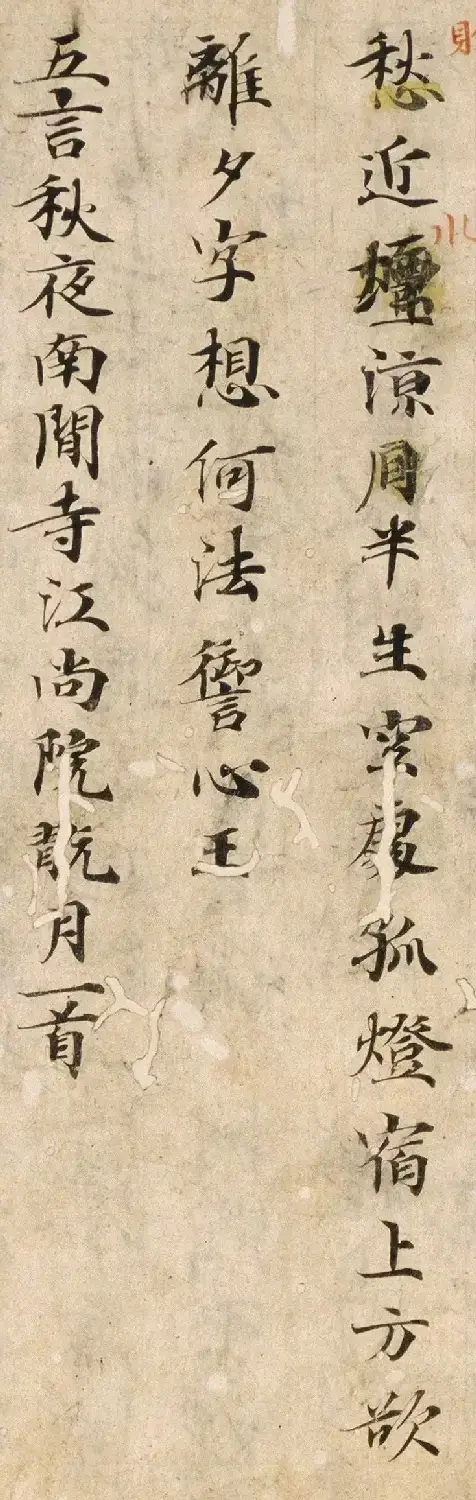 愁近壇涼月半生空霞孤燈宿上方欲
離夕字想何法禦心王
五言秋夜南閒寺江尚院翫月一首